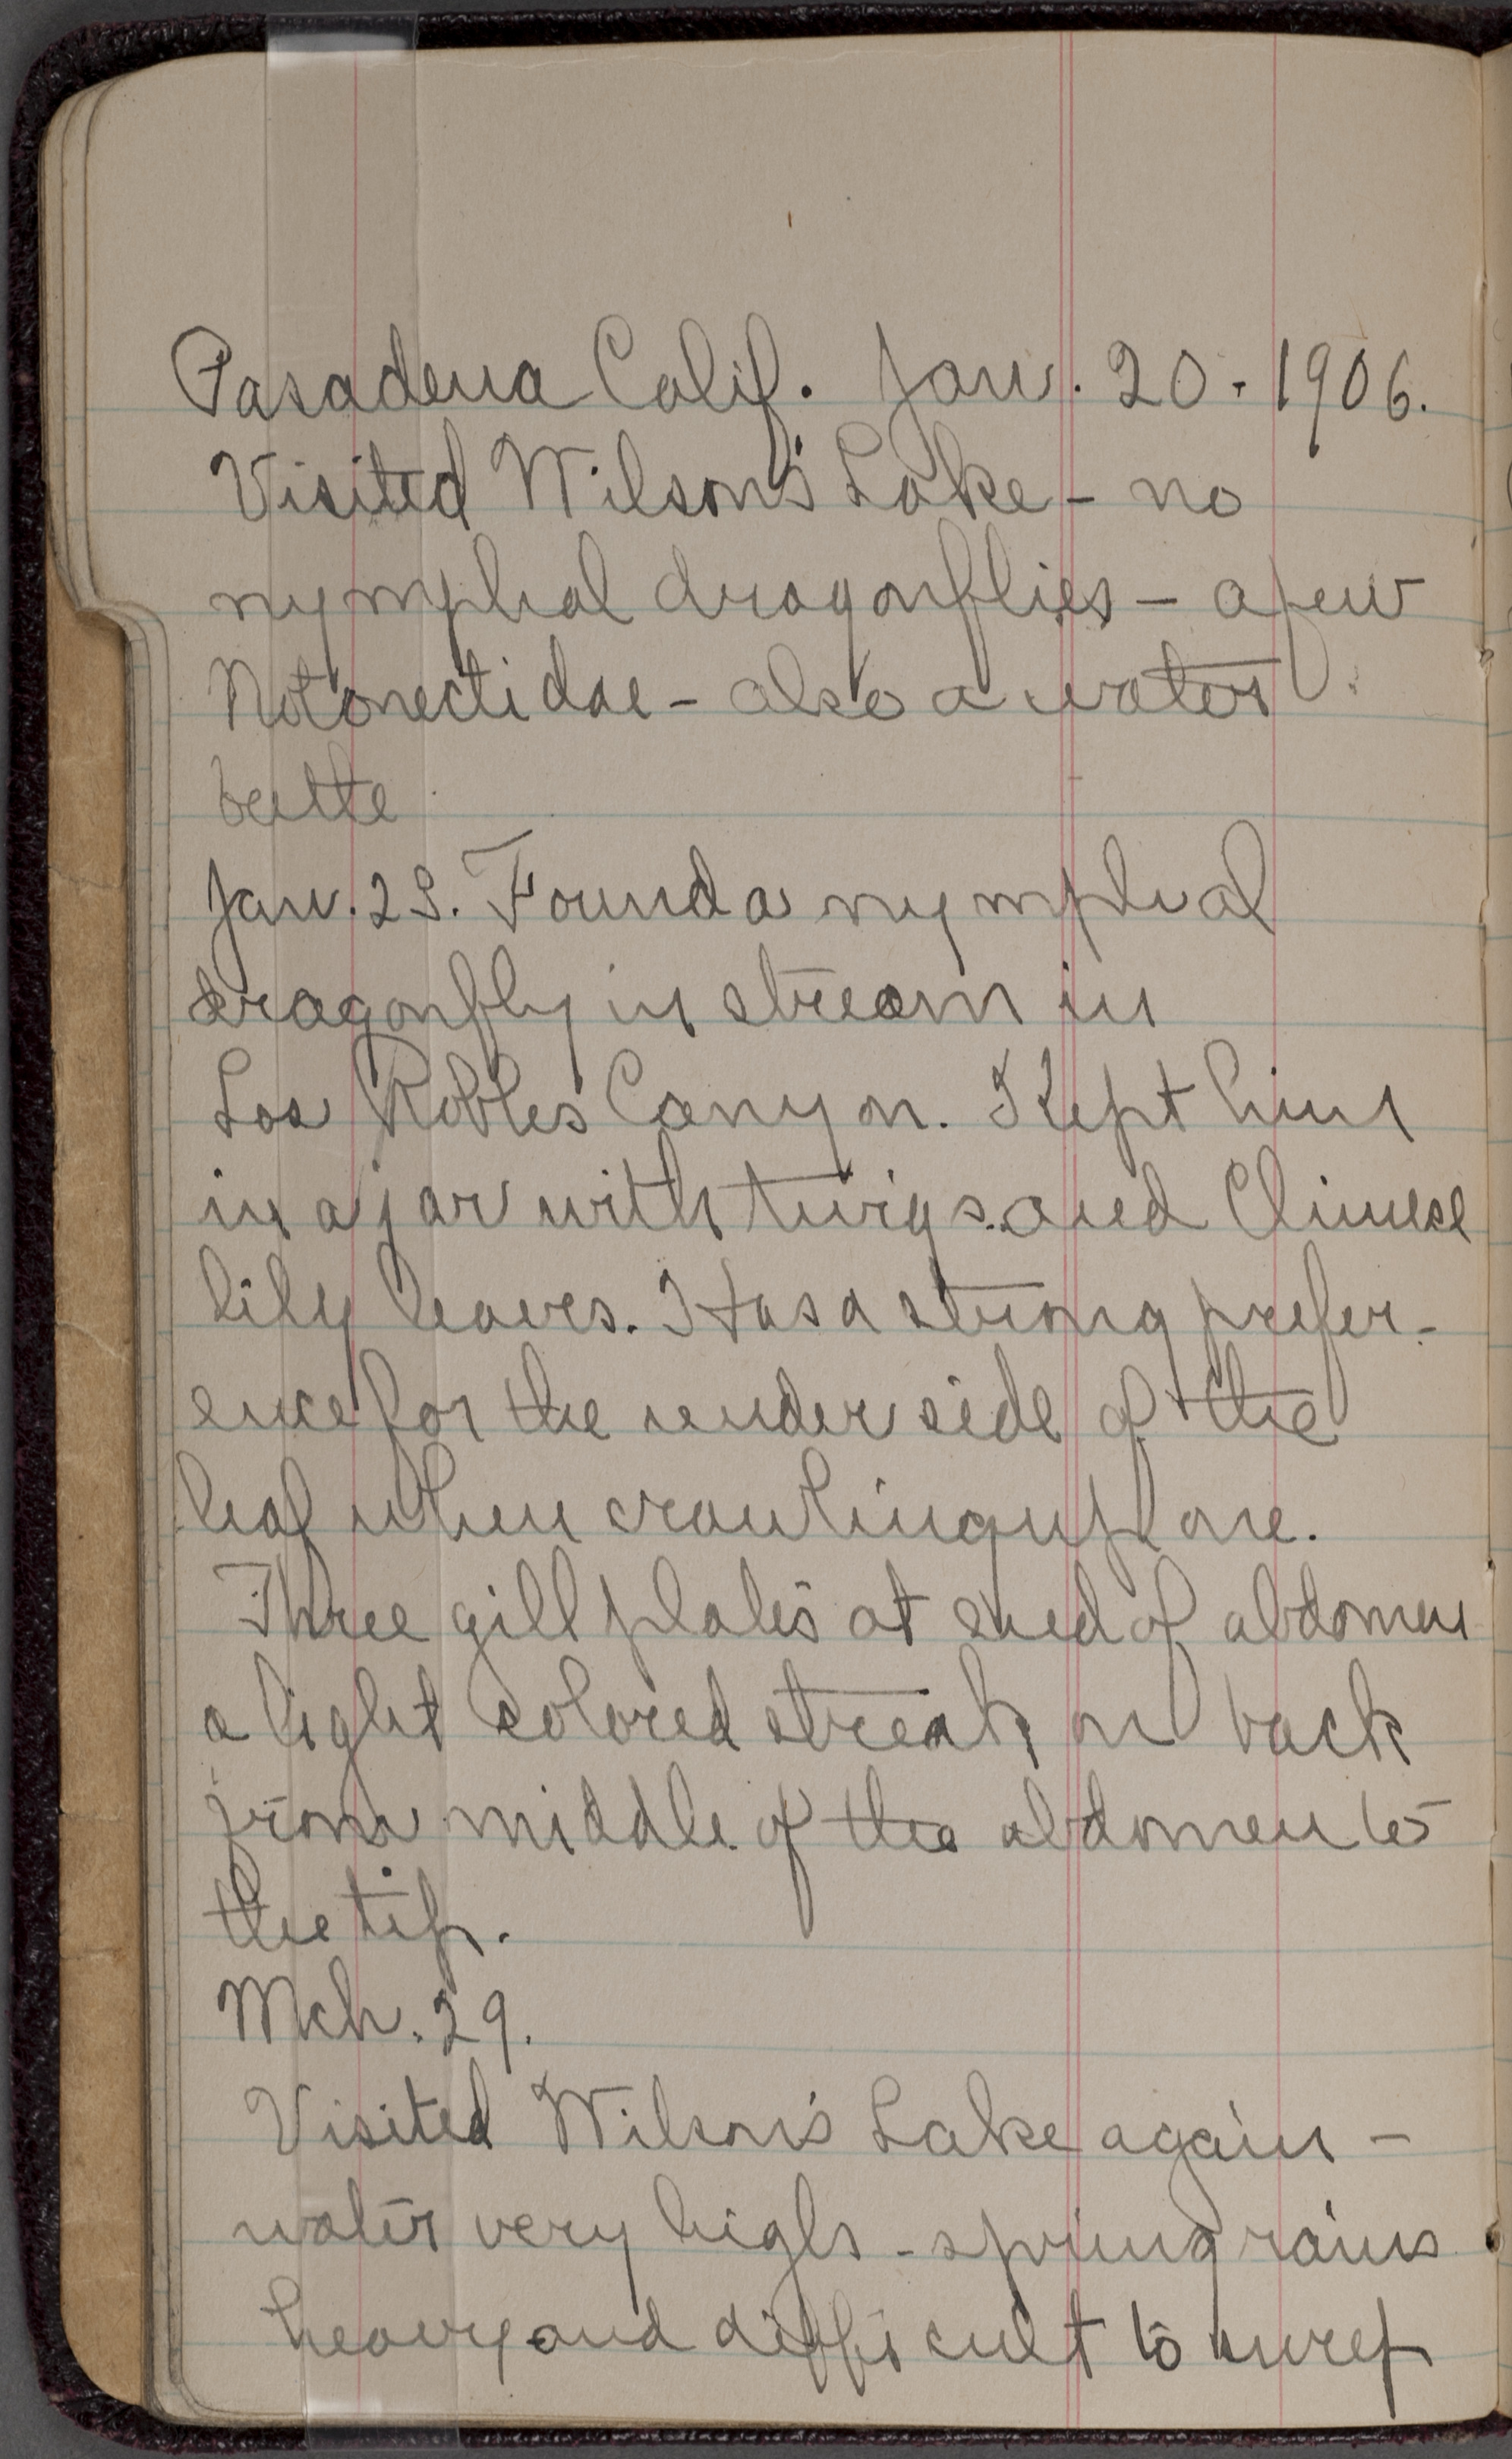 Pasadena Calif. Jan. 20. 1906.
Visited Wilson's Lake - no
nymphal dragonflies - a few
Notonectidae - also a water
beetle
Jan. 23. Found a nymphal
dragonfly in stream in
Los Robles Canyon. Kept him
in a jar with twigs and Chinese
lily leaves. Has a strong prefer-
ence for the under side of the
leaf when crawling up one.
Three gill plates at end of abdomen
a light colored streak on back
from middle of the abdomen to
the tip.
Mch. 29.
Visited Wilson's Lake again -
water very high - spring rains
heavy and difficult to sweep